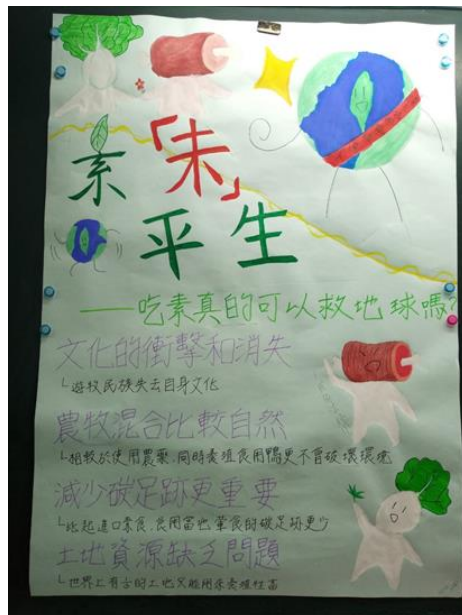 素「未」
平生
——吃素真的可以救地球嗎?
文化的衝擊和消失
└遊牧民族失去自身文化
農牧混合比較自然
└相較於使用農藥,同時養殖食用鴨更不會破壞環境
減少碳足跡更重要
└比起進口素食,食用當地葷食的碳足跡更少
土地資源缺乏問題
└世界上有的土地只能用來養殖牲畜